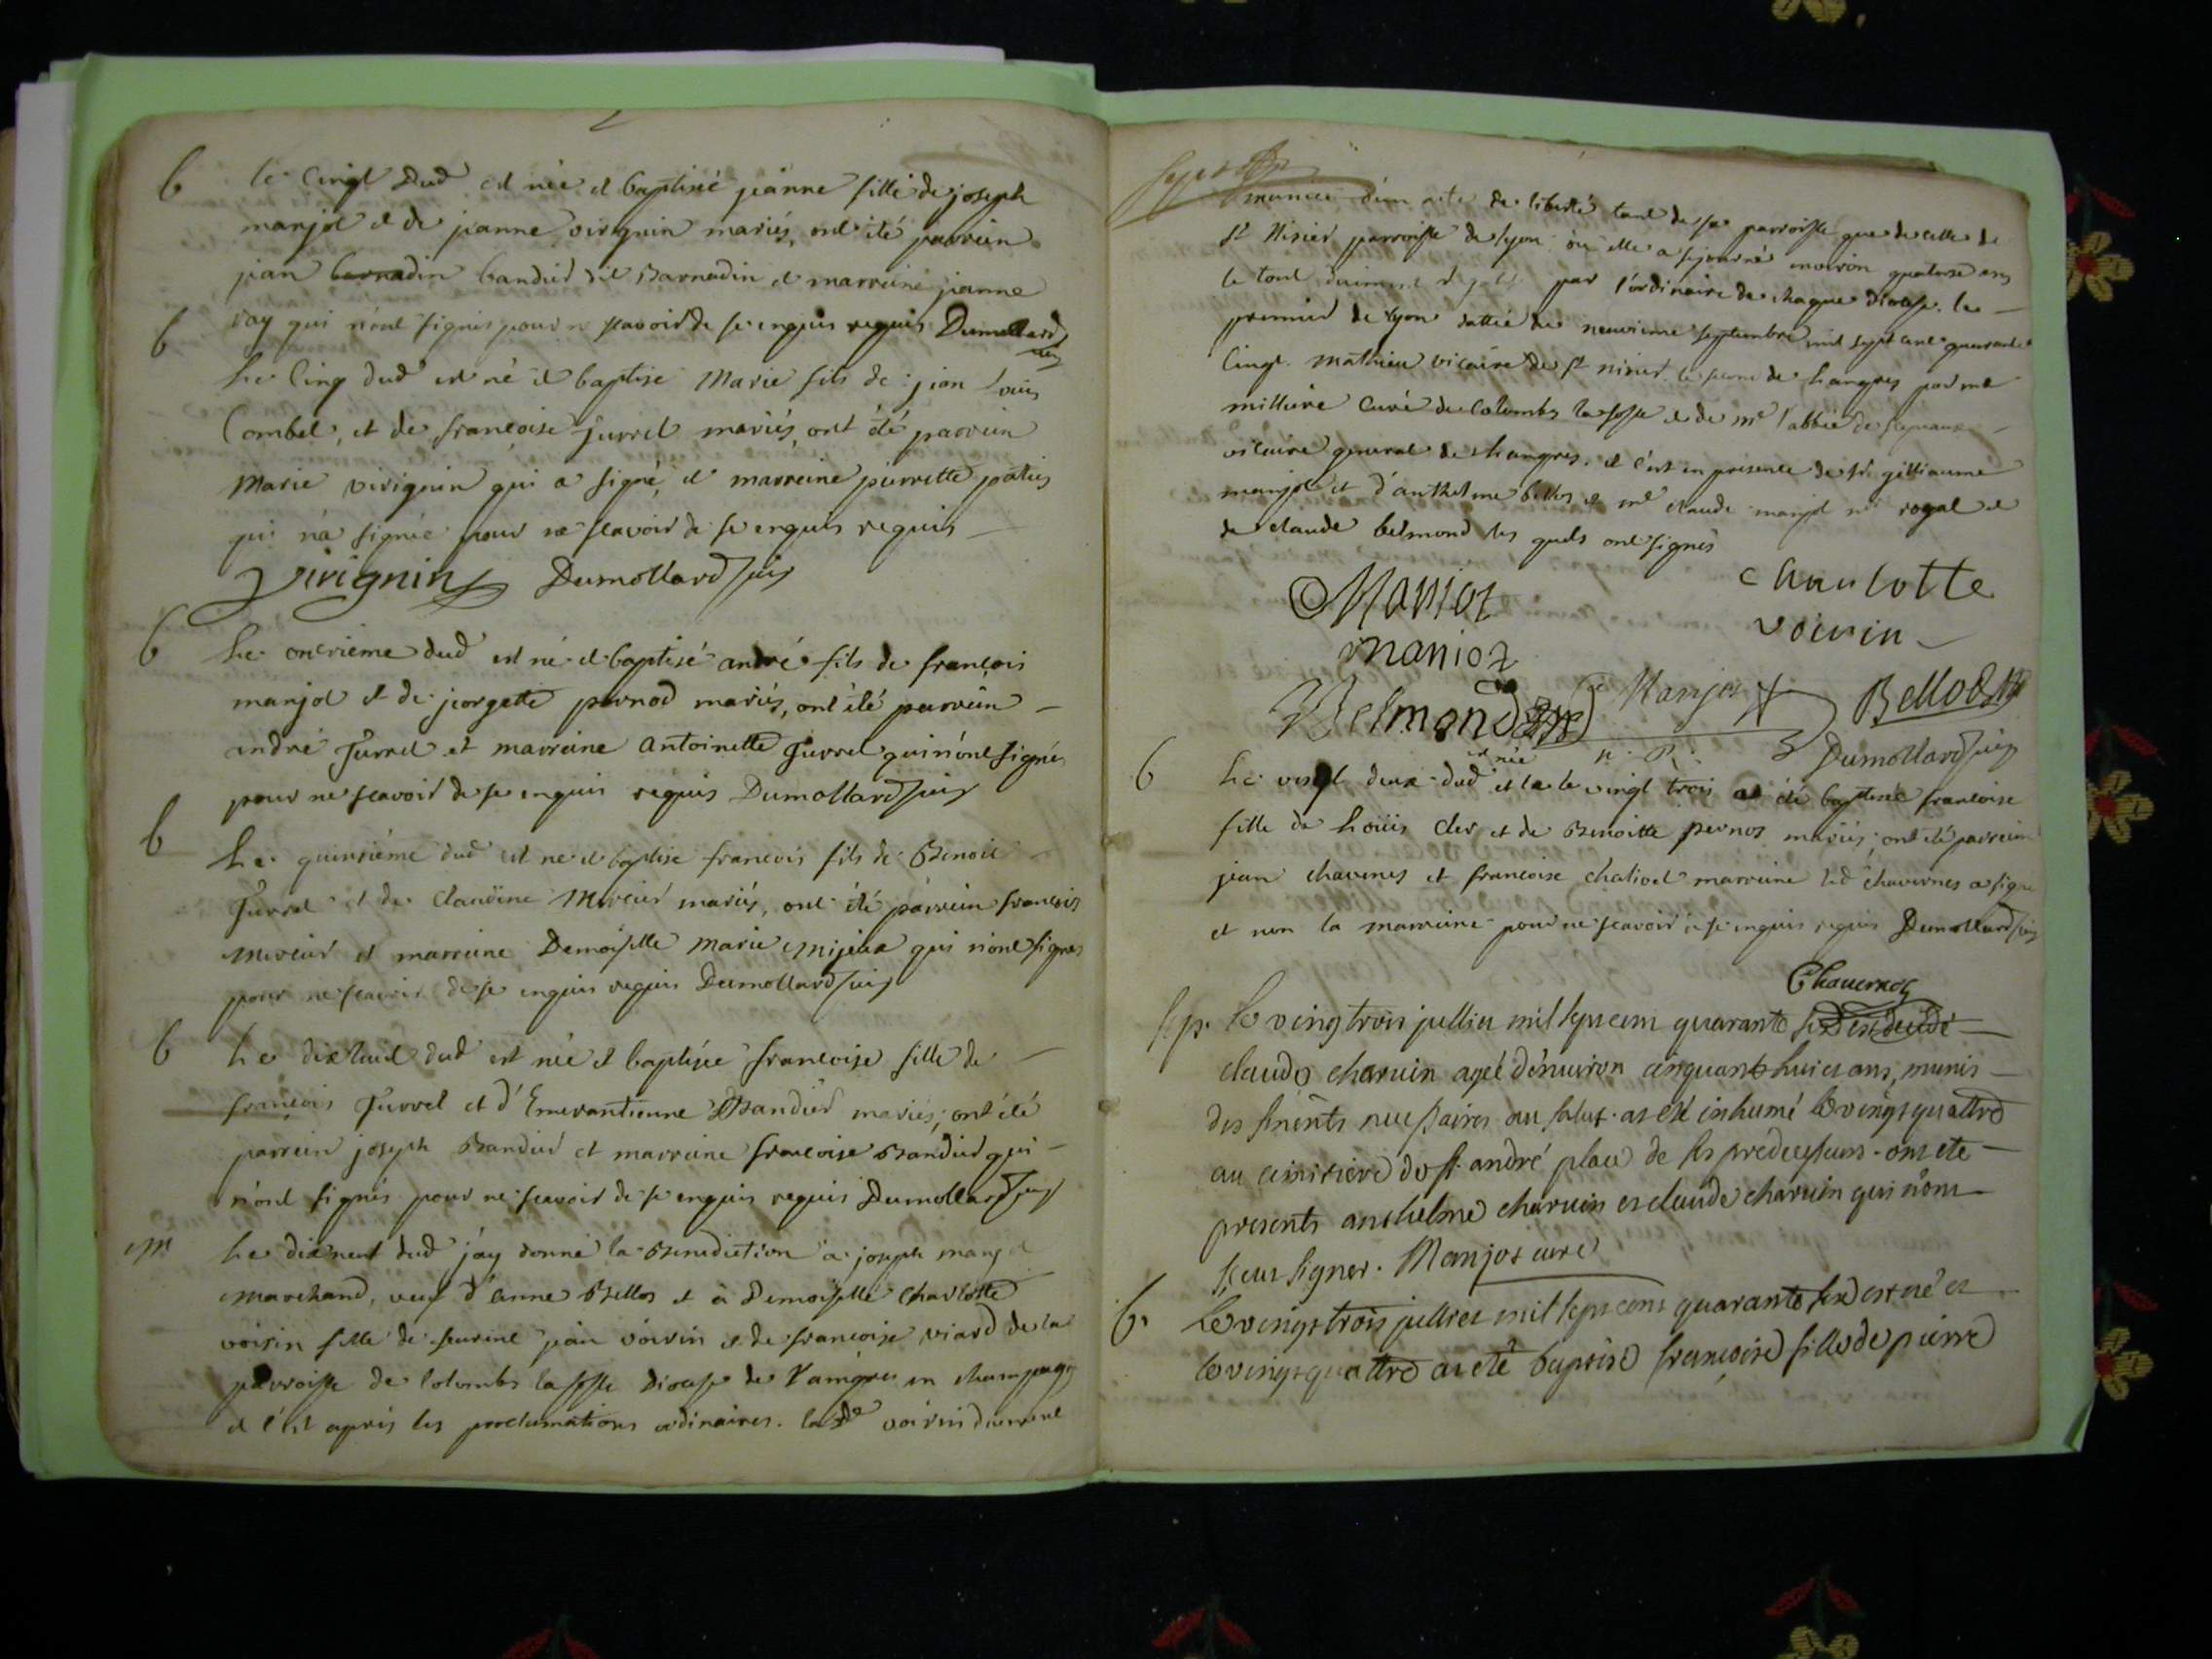 b le cinqt dud est née et baptisée jeanne fille de joseph
manjot et de jeanne virignin mariés, ont été parrein
jean bernadin bandier dit Barnadin et marreine jeanne
ray qui n'ont signés pour ne scavoir de se enquis requis Dumollard
b Le cinq dud est né et baptisé Marie fils de jean Louis
Combet, et de francoise Jurrel mariés, ont été parrein
Marie virignin qui a signé, et marreine pierrette
qui n'a signée pour ne scavoir de se enquis requis
Virignin Dumollard
b Le onzieme dud est né et baptisé andré fils de françois
manjot et de jeorgette pernod mariés, ont été parrein
andré Jurrel et marreine antoinette Jurrel qui n'ont signés
pour ne scavoir de se enquis requis Dumollard
b Le quinzième dud est né et baptisé francois fils de Benoit
Jurrel et de Claudine Mercier mariés, ont été parrein francois
mercier et marreine Demoiselle marie mijeux qui n'ont signés
pour ne scavoir de se enquis requis Dumollard
b Le dixhuit dud est née et baptisée francoise fille de
françois Jurrel et d'Emerantienne Bandier mariés, ont été
parrein joseph Bandier et marreine francoise Bandier qui
n'ont signés pour ne scavoir de se enquis requis Dumollard
m Le dixneuf dud j'ay donné la Benediction a joseph manjot
marchand, veuf d'anne Bellos et à Demoiselle Charlotte
voirin fille de jean voirin et de francoise viard de la
parroisse de Colombs la fosse diocese de Langres en champagne
et c'est apres les proclamations ordinaires. lade voirin duement
munie d'un acte de liberté tant de sa parroisse que de celle de
st Nisier parroisse de lyon où elle a sejourné environ quatorse ans
le tout duement par l'ordinaire de chaque diocese. le
premier de lyon dattée du neuvieme septembre mil sept cent quarante
cinqt. mathieu vicaire de st nisier. le second de Langres par me
milliere curé de Colombs la fosse et de mr l'abbé de
vicaire general de Langres. et c'est en présence de sr gilliaume
manjot et d'anthelme bellos et me claude manjot nre royal et
de claude belmond les quels ont signés
Manjot chaulotte
manjot voirin
Belmond Manjot Bellod
n. R. Dumollard
est née
b Le vingt deux dud et le vingt trois a été baptisée francoise
fille de Loüis Cler et de Benoitte pernos mariés, ont été parrein
jean chavernes et francoise chaliod marreine led chavernes a signé
et non la marreine pour ne scavoir de se enquis requis Dumollard
Chauernos
sep. Le vingtrois jullier mil septcent quarante six est décédé
claude charuin agéé d'énuiron cinquante huict ans, munis
des sréments necessaires au salut. at esté inhumé le vingtquattre
au cimitiere de st. andré place de ses predecesseurs. ont ete
presents anthelme charuin et claude charuin qui n'ont
sceu signer. Manjot curé
b. Le vingt trois jullier mil sept cent quarante six est né et
le vingtquattre at eté baptisé françoise fille de pierre